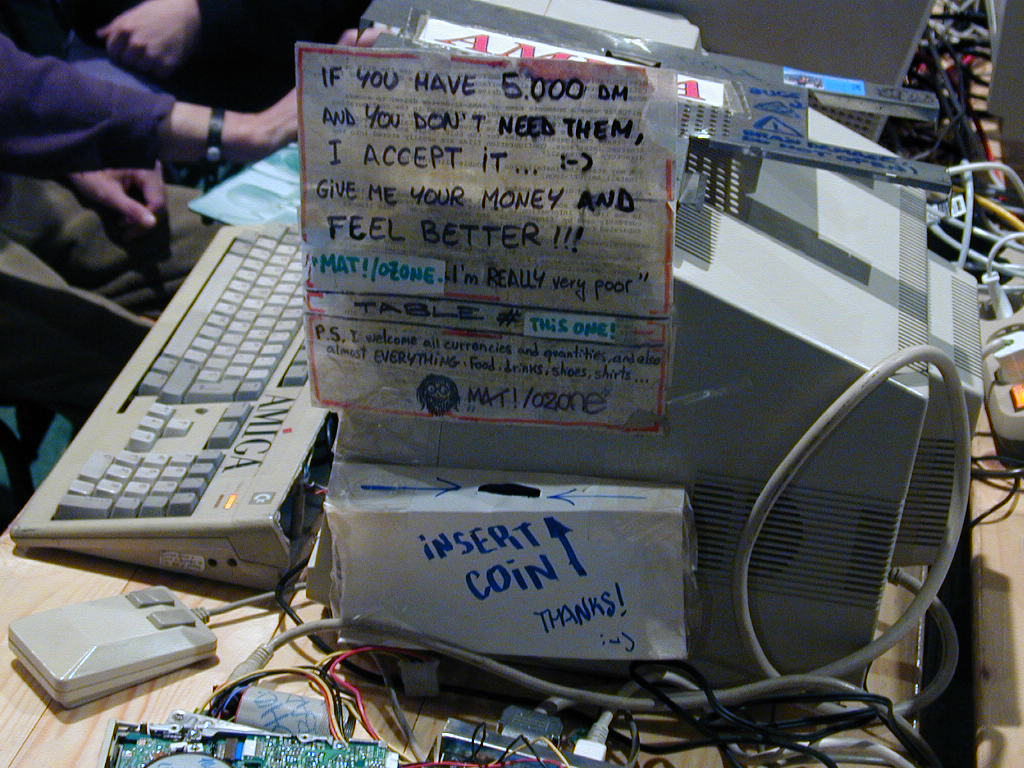 AM
IF YOU HAVE 5.000 DM
AND YOU DON'T NEED THEM,
I ACCEPT IT... :-)
GIVE ME YOUR MONEY AND
FEEL BETTER!!!
"MAT!/OZONE. I'm REALLY very poor"
TABLE # THIS ONE!
P.S. I welcome all currencies and quantities, and also
almost EVERYTHING. Food, drinks, shoes, shirts...
"MAT!/OZONE"
AMIGA
INSERT
COIN
THANKS!
:-)